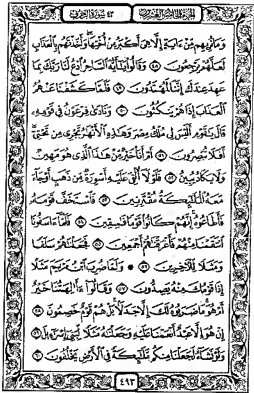 الجزء الخامس والعشرون ٤٣ سورة الزخرف
وَمَا نُرِيهِم مِّنْ ءَايَةٍ إِلَّا هِىَ أَكْبَرُ مِنْ أُخْتِهَا ۖ وَأَخَذْنَٰهُم بِٱلْعَذَابِ
لَعَلَّهُمْ يَرْجِعُونَ ٤٨ وَقَالُوا۟ يَٰٓأَيُّهَ ٱلسَّاحِرُ ٱدْعُ لَنَا رَبَّكَ بِمَا
عَهِدَ عِندَكَ إِنَّنَا لَمُهْتَدُونَ ٤٩ فَلَمَّا كَشَفْنَا عَنْهُمُ
ٱلْعَذَابَ إِذَا هُمْ يَنكُثُونَ ٥٠ وَنَادَىٰ فِرْعَوْنُ فِى قَوْمِهِۦ
قَالَ يَٰقَوْمِ أَلَيْسَ لِى مُلْكُ مِصْرَ وَهَٰذِهِ ٱلْأَنْهَٰرُ تَجْرِى مِن تَحْتِىٓ ۖ
أَفَلَا تُبْصِرُونَ ٥١ أَمْ أَنَا۠ خَيْرٌ مِّنْ هَٰذَا ٱلَّذِى هُوَ مَهِينٌ
وَلَا يَكَادُ يُبِينُ ٥٢ فَلَوْلَآ أُلْقِىَ عَلَيْهِ أَسْوِرَةٌ مِّن ذَهَبٍ أَوْ جَآءَ
مَعَهُ ٱلْمَلَٰٓئِكَةُ مُقْتَرِنِينَ ٥٣ فَٱسْتَخَفَّ قَوْمَهُۥ
فَأَطَاعُوهُ ۚ إِنَّهُمْ كَانُوا۟ قَوْمًا فَٰسِقِينَ ٥٤ فَلَمَّآ ءَاسَفُونَا
ٱنتَقَمْنَا مِنْهُمْ فَأَغْرَقْنَٰهُمْ أَجْمَعِينَ ٥٥ فَجَعَلْنَٰهُمْ سَلَفًا
وَمَثَلًا لِّلْءَاخِرِينَ ٥٦ وَلَمَّا ضُرِبَ ٱبْنُ مَرْيَمَ مَثَلًا
إِذَا قَوْمُكَ مِنْهُ يَصِدُّونَ ٥٧ وَقَالُوٓا۟ ءَأَٰلِهَتُنَا خَيْرٌ
أَمْ هُوَ ۚ مَا ضَرَبُوهُ لَكَ إِلَّا جَدَلًۢا ۚ بَلْ هُمْ قَوْمٌ خَصِمُونَ ٥٨
إِنْ هُوَ إِلَّا عَبْدٌ أَنْعَمْنَا عَلَيْهِ وَجَعَلْنَٰهُ مَثَلًا لِّبَنِىٓ إِسْرَٰٓءِيلَ ٥٩
وَلَوْ نَشَآءُ لَجَعَلْنَا مِنكُم مَّلَٰٓئِكَةً فِى ٱلْأَرْضِ يَخْلُفُونَ ٦٠
٤٩٣